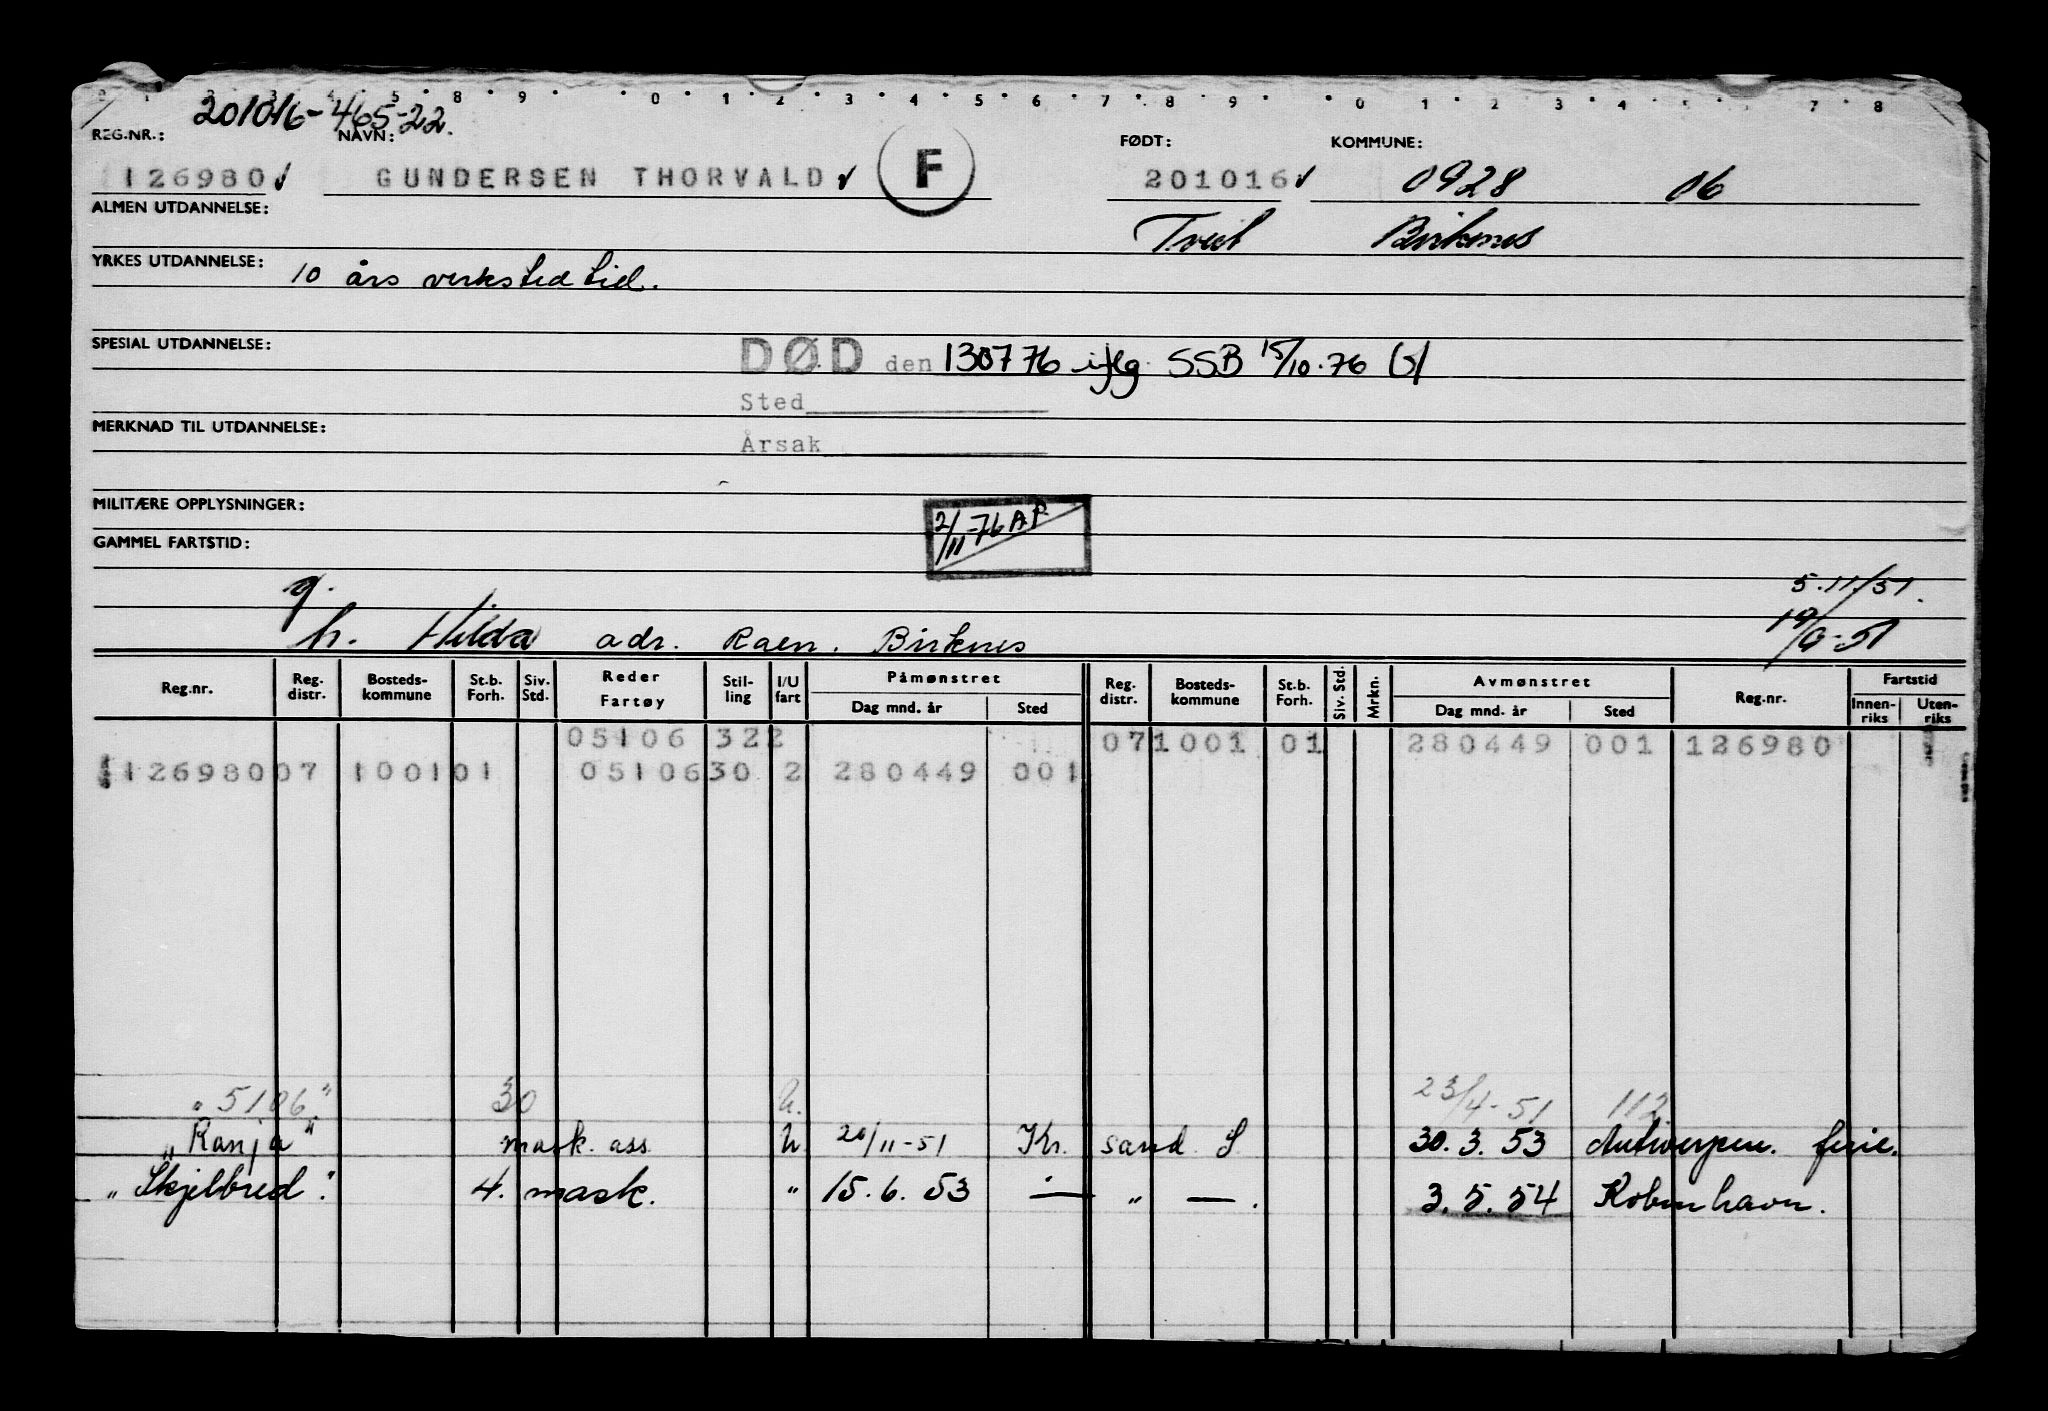 1 2 3 4 5 8 9 0 1 2 3 4 5 6 7 8 9 0 1 2 3 4 5 6 7 8
201016-465-22.
REG.NR.: NAVN: FØDT: KOMMUNE:
126980 GUNDERSEN THORVALD F 201016 0928 06
ALMEN UTDANNELSE: Tveit Birknes
YRKES UTDANNELSE: 10 års verksted tid.
SPESIAL UTDANNELSE: DØD den 130776 iflg. SSB 15/10.76
Sted
MERKNAD TIL UTDANNELSE:
Årsak
MILITÆRE OPPLYSNINGER: 2/11-76 AP
GAMMEL FARTSTID:
g. 5.11/51.
h. Hilda adr. Raen. Birknes 19/9-51
Reg.nr. Reg. distr. Bosteds-kommune St.b. Forh. Siv. Std. Reder Fartøy Stil-ling I/U fart Påmønstret Dag mnd. år Sted Reg. distr. Bosteds-kommune St.b. Forh. Siv. Std. Mrkn. Avmønstret Dag mnd. år Sted Reg.nr. Fartstid Innen-riks Uten-riks
05106 322 071001 01 280449 001 126980
12698007 100101 0510630 2 280449 001
"5106." 30 U. 23/4-51 112
"Ranja" mask. ass U. 20/11-51 Kr. sand S 30.3.53 Antwerpen. ferie.
"Skjelbred". 4. mask. " 15.6.53 — " — . 3.5.54 København.